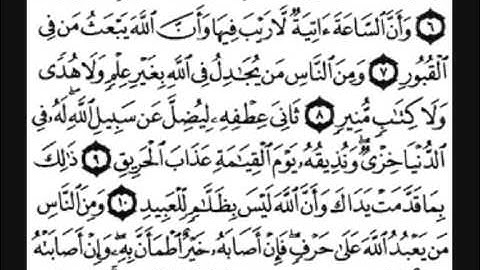 ٦ وَأَنَّ ٱلسَّاعَةَ ءَاتِيَةٌ لَّا رَيْبَ فِيهَا وَأَنَّ ٱللَّهَ يَبْعَثُ مَن فِى
ٱلْقُبُورِ ٧ وَمِنَ ٱلنَّاسِ مَن يُجَـٰدِلُ فِى ٱللَّهِ بِغَيْرِ عِلْمٍ وَلَا هُدًى
وَلَا كِتَـٰبٍ مُّنِيرٍ ٨ ثَانِىَ عِطْفِهِۦ لِيُضِلَّ عَن سَبِيلِ ٱللَّهِ ۖ لَهُۥ فِى
ٱلدُّنْيَا خِزْىٌ ۖ وَنُذِيقُهُۥ يَوْمَ ٱلْقِيَـٰمَةِ عَذَابَ ٱلْحَرِيقِ ٩ ذَٰلِكَ
بِمَا قَدَّمَتْ يَدَاكَ وَأَنَّ ٱللَّهَ لَيْسَ بِظَلَّـٰمٍ لِّلْعَبِيدِ ١٠ وَمِنَ ٱلنَّاسِ
مَن يَعْبُدُ ٱللَّهَ عَلَىٰ حَرْفٍ ۖ فَإِنْ أَصَابَهُۥ خَيْرٌ ٱطْمَأَنَّ بِهِۦ ۖ وَإِنْ أَصَابَتْهُ